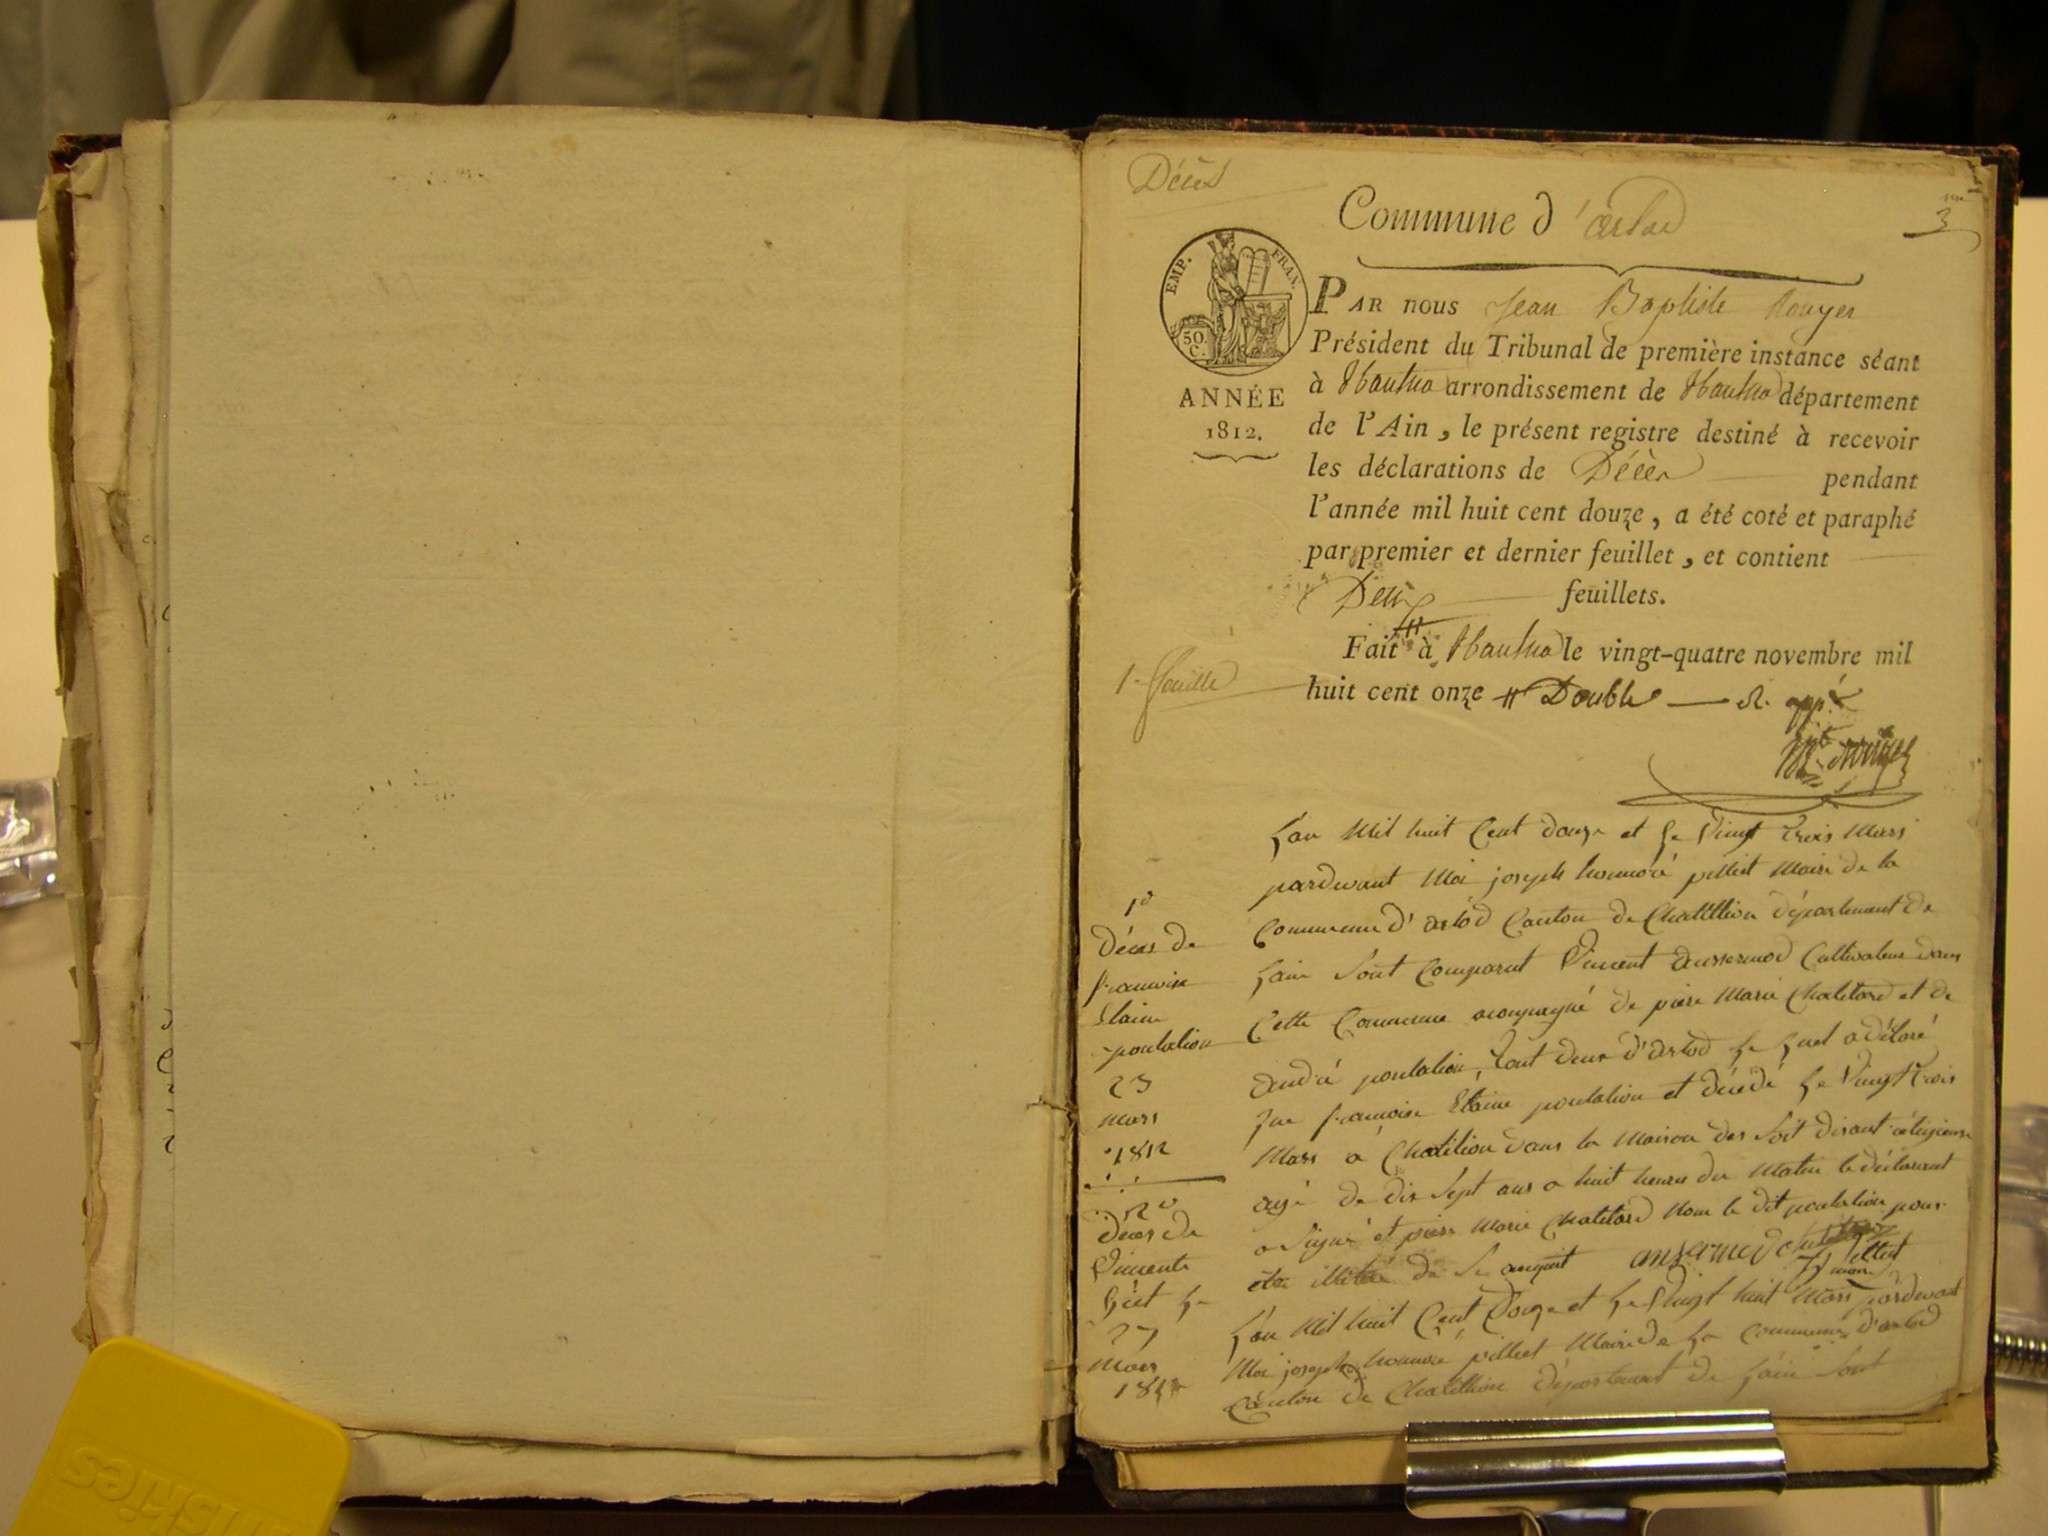 Décès
Commune d'arlod
3
EMP. FRAN.
50. C.
ANNÉE
1812.
PAR nous Jean Baptiste Rouyer
Président du Tribunal de première instance séant
à Nantua arrondissement de Nantua département
de l'Ain, le présent registre destiné à recevoir
les déclarations de Décès pendant
l'année mil huit cent douze, a été coté et paraphé
par premier et dernier feuillet, et contient
Deux feuillets.
Fait à Nantua le vingt-quatre novembre mil
huit cent onze # Double
1. feuille
1º
Décès de
françoise
poulalion
23
mars
1812
L'an Mil huit Cent douze et Le Vingt trois Mars
pardevant Moi joseph honnoré Maire de la
Commune d'arlod Canton de Chatillion département de
Lain Sont Comparut Vincent Cultivateur dans
Cette Commune acompagné de piere Marie Chatitard et de
andré poulalion, tout deux d'arlod Le quel a déloré
que françoise poulalion et décédé Le Vingt trois
Mars a Chatilion dans la Maison des Soit disant
agé de dix Sept ans a huit heures du Matin le déclarant
a Signé et piere Marie Chatitard Non le dit poulalion pour
être illitéré de Se
ansermod
2º
décès de
Vincent
Le
27
Mars
L'an Mil huit Cent Douze et Le Vingt huit Mars pardevant
Moi joseph honnoré Maire de La Commune d'arlod
Canton de Chatillion département de Lain Sont
niskies